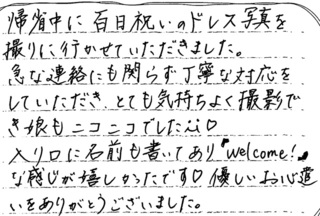 帰省中に百日祝いのドレス写真を
撮りに行かせていただきました。
急な連絡にも関らず丁寧な対応を
していただき、とても気持ちよく撮影で
き娘もニコニコでした^^♡
入り口に名前も書いてあり"welcome!"
な感じが嬉しかったです♡優しいお心遣
いをありがとうございました。